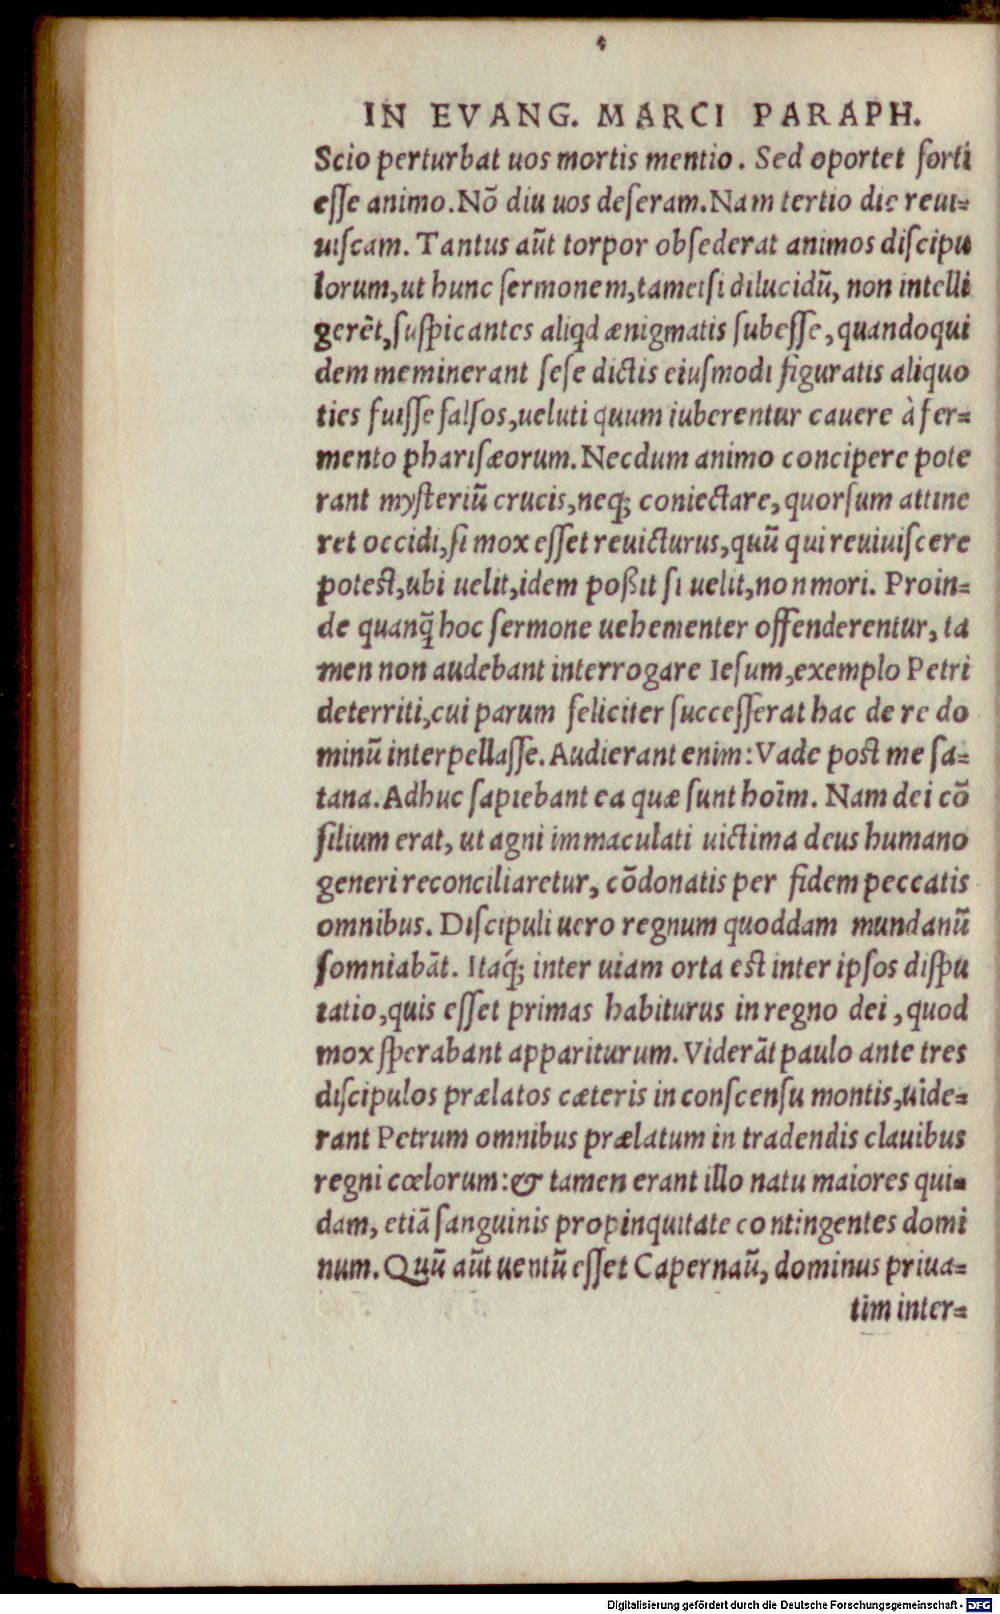 IN EVANG. MARCI PARAPH.
Scio perturbat uos mortis mentio. Sed oportet forti
esse animo. Nõ diu uos deseram. Nam tertio die reui-
uiscam. Tantus aũt torpor obsederat animos discipu
lorum, ut hunc sermonem, tametsi dilucidũ, non intelli
gerẽt, suspicantes aliqd ænigmatis subesse, quandoqui
dem meminerant sese dictis eiusmodi figuratis aliquo
ties fuisse falsos, ueluti quum iuberentur cauere à fer-
mento pharisæorum. Necdum animo concipere pote
rant mysteriũ crucis, neq; coniectare, quorsum attine
ret occidi, si mox esset reuicturus, quũ qui reuiuiscere
potest, ubi uelit, idem poßit si uelit, non mori. Proin-
de quanq̃ hoc sermone uehementer offenderentur, ta
men non audebant interrogare Iesum, exemplo Petri
deterriti, cui parum feliciter successerat hac de re do
minũ interpellasse. Audierant enim: Vade post me sa-
tana. Adhuc sapiebant ea quæ sunt hoĩm. Nam dei cõ
silium erat, ut agni immaculati uictima deus humano
generi reconciliaretur, cõdonatis per fidem peccatis
omnibus. Discipuli uero regnum quoddam mundanũ
somniabãt. Itaq́; inter uiam orta est inter ipsos dispu
tatio, quis esset primas habiturus in regno dei, quod
mox sperabant appariturum. Viderãt paulo ante tres
discipulos prælatos cæteris in conscensu montis, uide-
rant Petrum omnibus prælatum in tradendis clauibus
regni cœlorum: & tamen erant illo natu maiores qui-
dam, etiã sanguinis propinquitate contingentes domi
num. Quũ aũt uentũ esset Capernaũ, dominus priua-
tim inter-
Digitalisierung gefördert durch die Deutsche Forschungsgemeinschaft - DFG